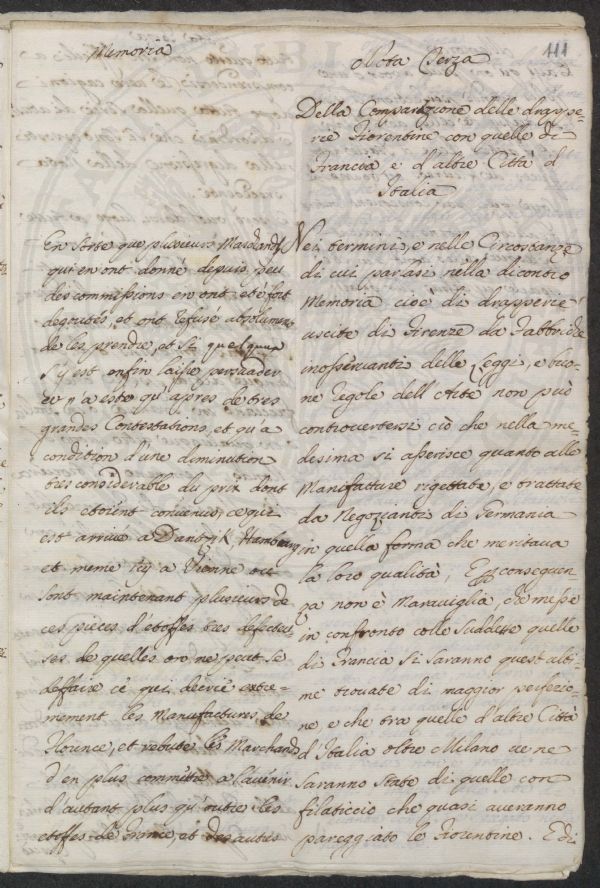 111
Memoria
En Sorte que plusieurs Marchands
qui en ont donné depuis peu
des commissions en ont eté fort
degoutés, et ont refusé absolument
de les prendre, et si quelqu'un
s'y est enfin laissé persuader
ce n'a esté qu'apres de tres
grandes Contestations, et qu'a
condition d'une diminution
tres considerable du prix dont
ils etoient convenus, ce qui
est arrivé a Dantzik, Hambourg
et meme icy a Vienne ou
sont maintenant plusieurs de
ces pieces d'etoffes tres defectueu
ses de quelles on ne peut se
deffaire ce qui decrie extre-
mement les Manufactures de
Florence, et rebute les Marchands
d'en plus commettre a l'avenir
d'autant plus qu'outre les
etoffes de France, et des autres
Nota Terza
Della Comparazione delle drappe-
rie Fiorentine con quelle di
Francia e d'altre Città d
Italia
Nei termini, e nelle Circostanze
di cui parlasi nella dicontro
Memoria cioè di drapperie
uscite di Firenze da Fabbriche
inosservanti delle Leggi, e buo-
ne regole dell'Arte non può
controvertersi ciò che nella me-
desima si asserisce quanto alle
Manifatture rigettate, e trattate
da Negozianti di Germania
in quella forma che meritava
la loro qualità, E p conseguen-
za non è Maraviglia, che messe
in confronto colle Suddette quelle
di Francia si saranno quest'ulti-
me trovate di maggior perfezio-
ne e che tra quelle d'altre Città
d'Italia oltre Milano ve ne
saranno state di quelle con
filaticcio che quasi averanno
pareggiato le Fiorentine. E di